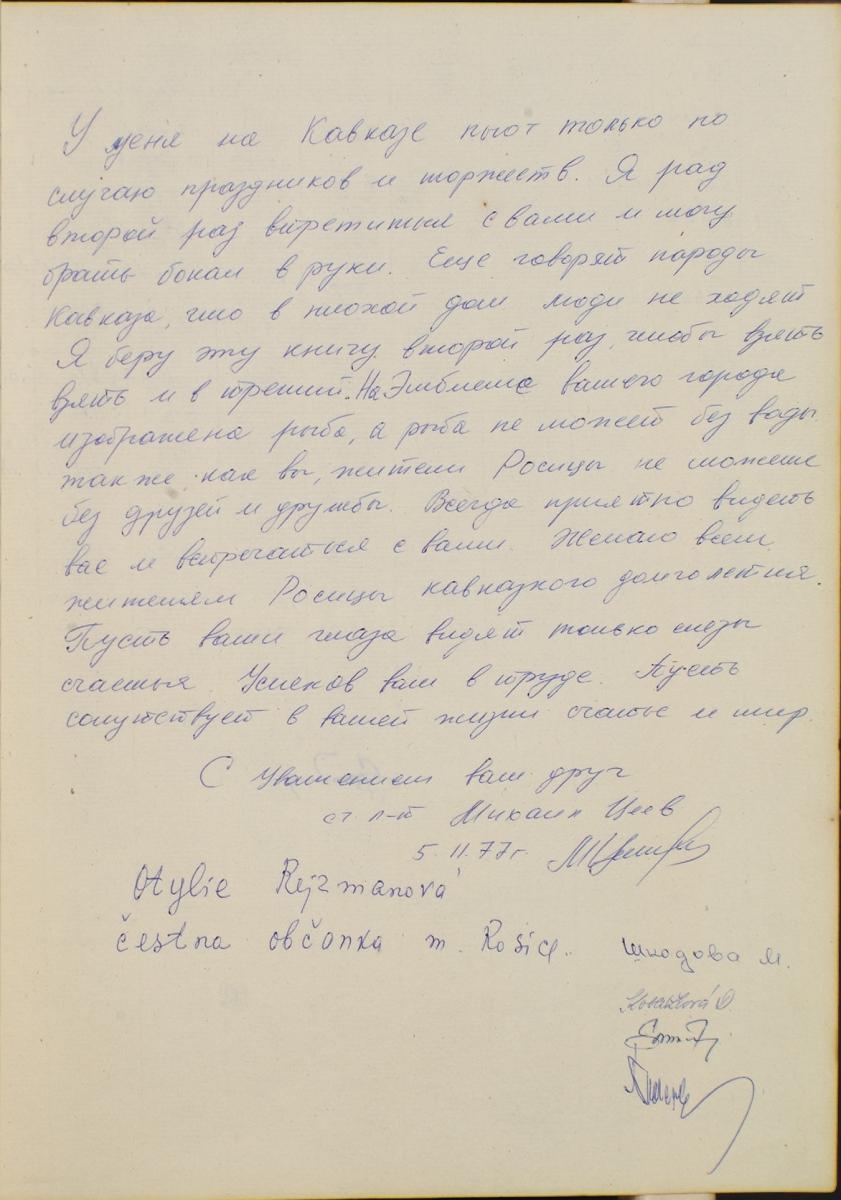 У меня на Кавказе пьют только по
случаю праздников и торжеств. Я рад
второй раз встретится с вами и могу
брать бокал в руки. Еще говорят народы
Кавказа, что в плохой дом люди не ходят
Я беру эту книгу второй раз, чтобы взять
взять и в третий. На Эмблеме вашего города
изображена рыба, а рыба не может без воды
также как вы, жители Росицы не можете
без друзей и дружбы. Всегда приятно видеть
вас и встречаться с вами. Желаю всем
жителям Росицы кавказкого долголетия.
Пусть ваши глаза видят только слезы
счастья. Успехов вам в труде. Пусть
сопутствует в вашей жизни счастье и мир.
С уважением ваш друг
ст. л-т Михаил Цеев
5.11.77г.
Otylie Rejzmanová
čestna občanka m. Rosice.
Шкодова М.